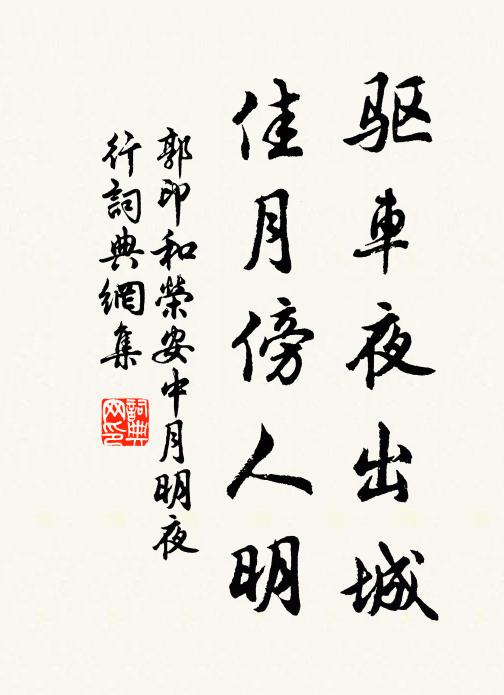 驱車夜出城
佳月傍人明
郭印和榮安中月明夜
行詞典網集
詞典網印